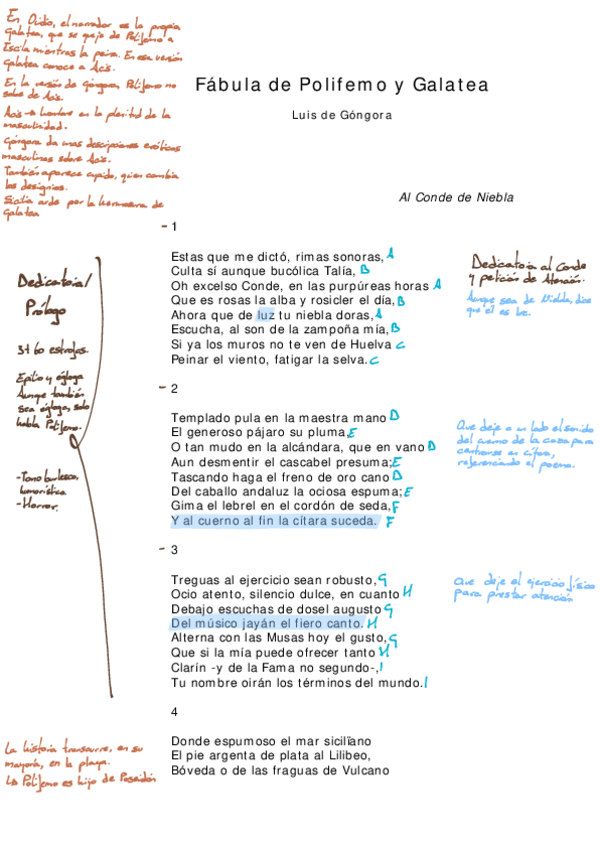 En Ovidio, el narrador es la propia
Galatea, que se queja de Polifemo a
Escila mientras la peina. En esa versión
Galatea conoce a Acis.
En la versión de Góngora, Polifemo no
sabe de Acis.
Acis → hombre en la plenitud de la
masculinidad.
Góngora da más descripciones eróticas
masculinas sobre Acis.
También aparece cupido, quien cambia
los designios.
Sicilia arde por la hermosura de
Galatea
Fábula de Polifemo y Galatea
Luis de Góngora
Al Conde de Niebla
- 1
Estas que me dictó, rimas sonoras, A
Culta sí aunque bucólica Talía, B
Oh excelso Conde, en las purpúreas horas A
Que es rosas la alba y rosicler el día, B
Ahora que de luz tu niebla doras, A
Escucha, al son de la zampoña mía, B
Si ya los muros no te ven de Huelva C
Peinar el viento, fatigar la selva. C
Dedicatoria al Conde
y petición de Atención.
Aunque sea de Niebla, dice
que él es luz.
Dedicatoria/
Prólogo
3+60 estrofas.
Epilio y égloga
Aunque también
sea égloga, solo
habla Polifemo.
-Tono burlesco,
humorística
-Horror.
- 2
Templado pula en la maestra mano D
El generoso pájaro su pluma, E
O tan mudo en la alcándara, que en vano D
Aun desmentir el cascabel presuma; E
Tascando haga el freno de oro cano D
Del caballo andaluz la ociosa espuma; E
Gima el lebrel en el cordón de seda, F
Y al cuerno al fin la cítara suceda. F
Que deje a un lado el sonido
del cuerno de la caza para
centrarse en cítara,
referenciando el poema.
- 3
Treguas al ejercicio sean robusto, G
Ocio atento, silencio dulce, en cuanto H
Debajo escuchas de dosel augusto G
Del músico jayán el fiero canto. H
Alterna con las Musas hoy el gusto, G
Que si la mía puede ofrecer tanto H
Clarín -y de la Fama no segundo-, I
Tu nombre oirán los términos del mundo. I
Que deje el ejercicio físico
para prestar atención
4
Donde espumoso el mar sicilïano
El pie argenta de plata al Lilibeo,
Bóveda o de las fraguas de Vulcano
La historia transcurre, en su
mayoría, en la playa.
↳ Polifemo es hijo de Poseidón